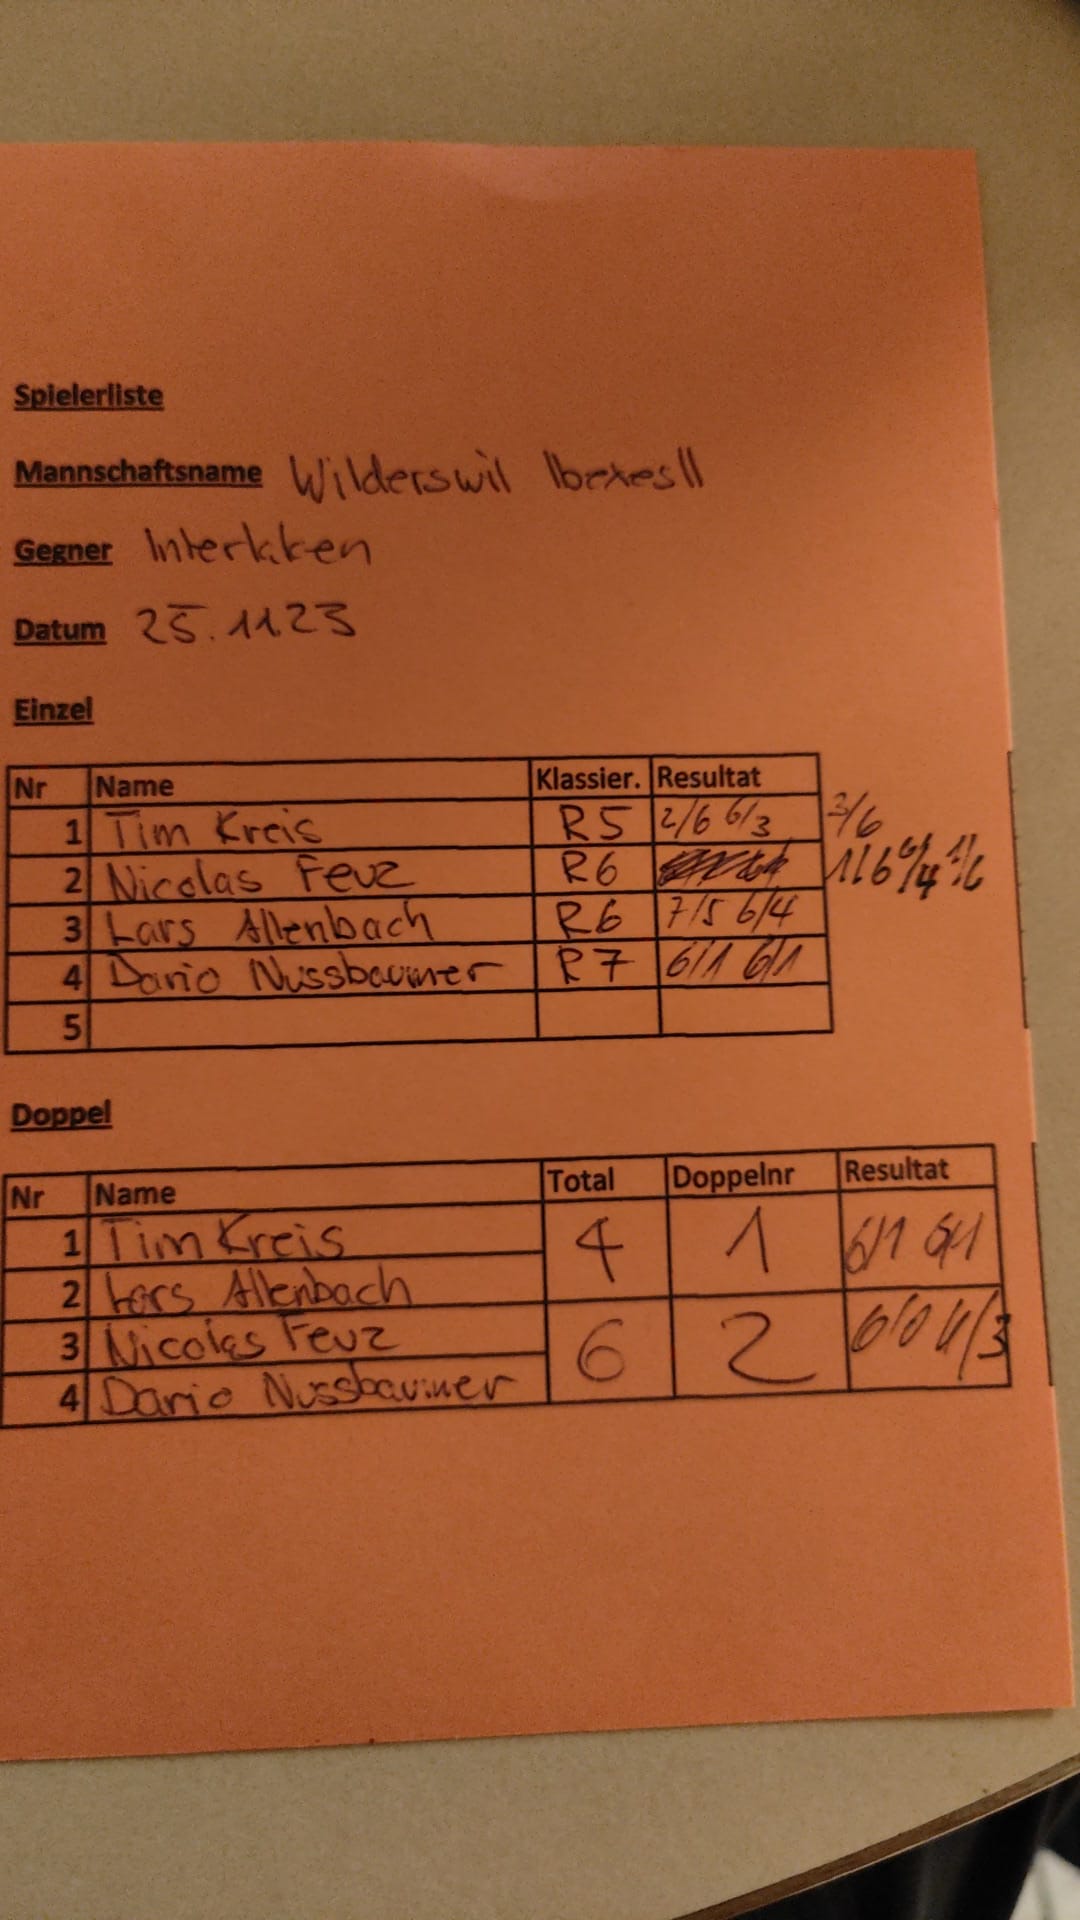 Spielerliste
Mannschaftsname Wilderswil Ibexes II
Gegner Interlaken
Datum 25.11.23
Einzel
Nr Name Klassier. Resultat
1 Tim Kreis R5 2/6 6/3 3/6
2 Nicolas Feuz R6 1/6 6/4 1/6
3 Lars Allenbach R6 7/5 6/4
4 Dario Nussbaumer R7 6/1 6/1
5
Doppel
Nr Name Total Doppelnr Resultat
1 Tim Kreis 4 1 6/1 6/1
2 Lars Allenbach
3 Nicolas Feuz 6 2 6/0 /3
4 Dario Nussbaumer